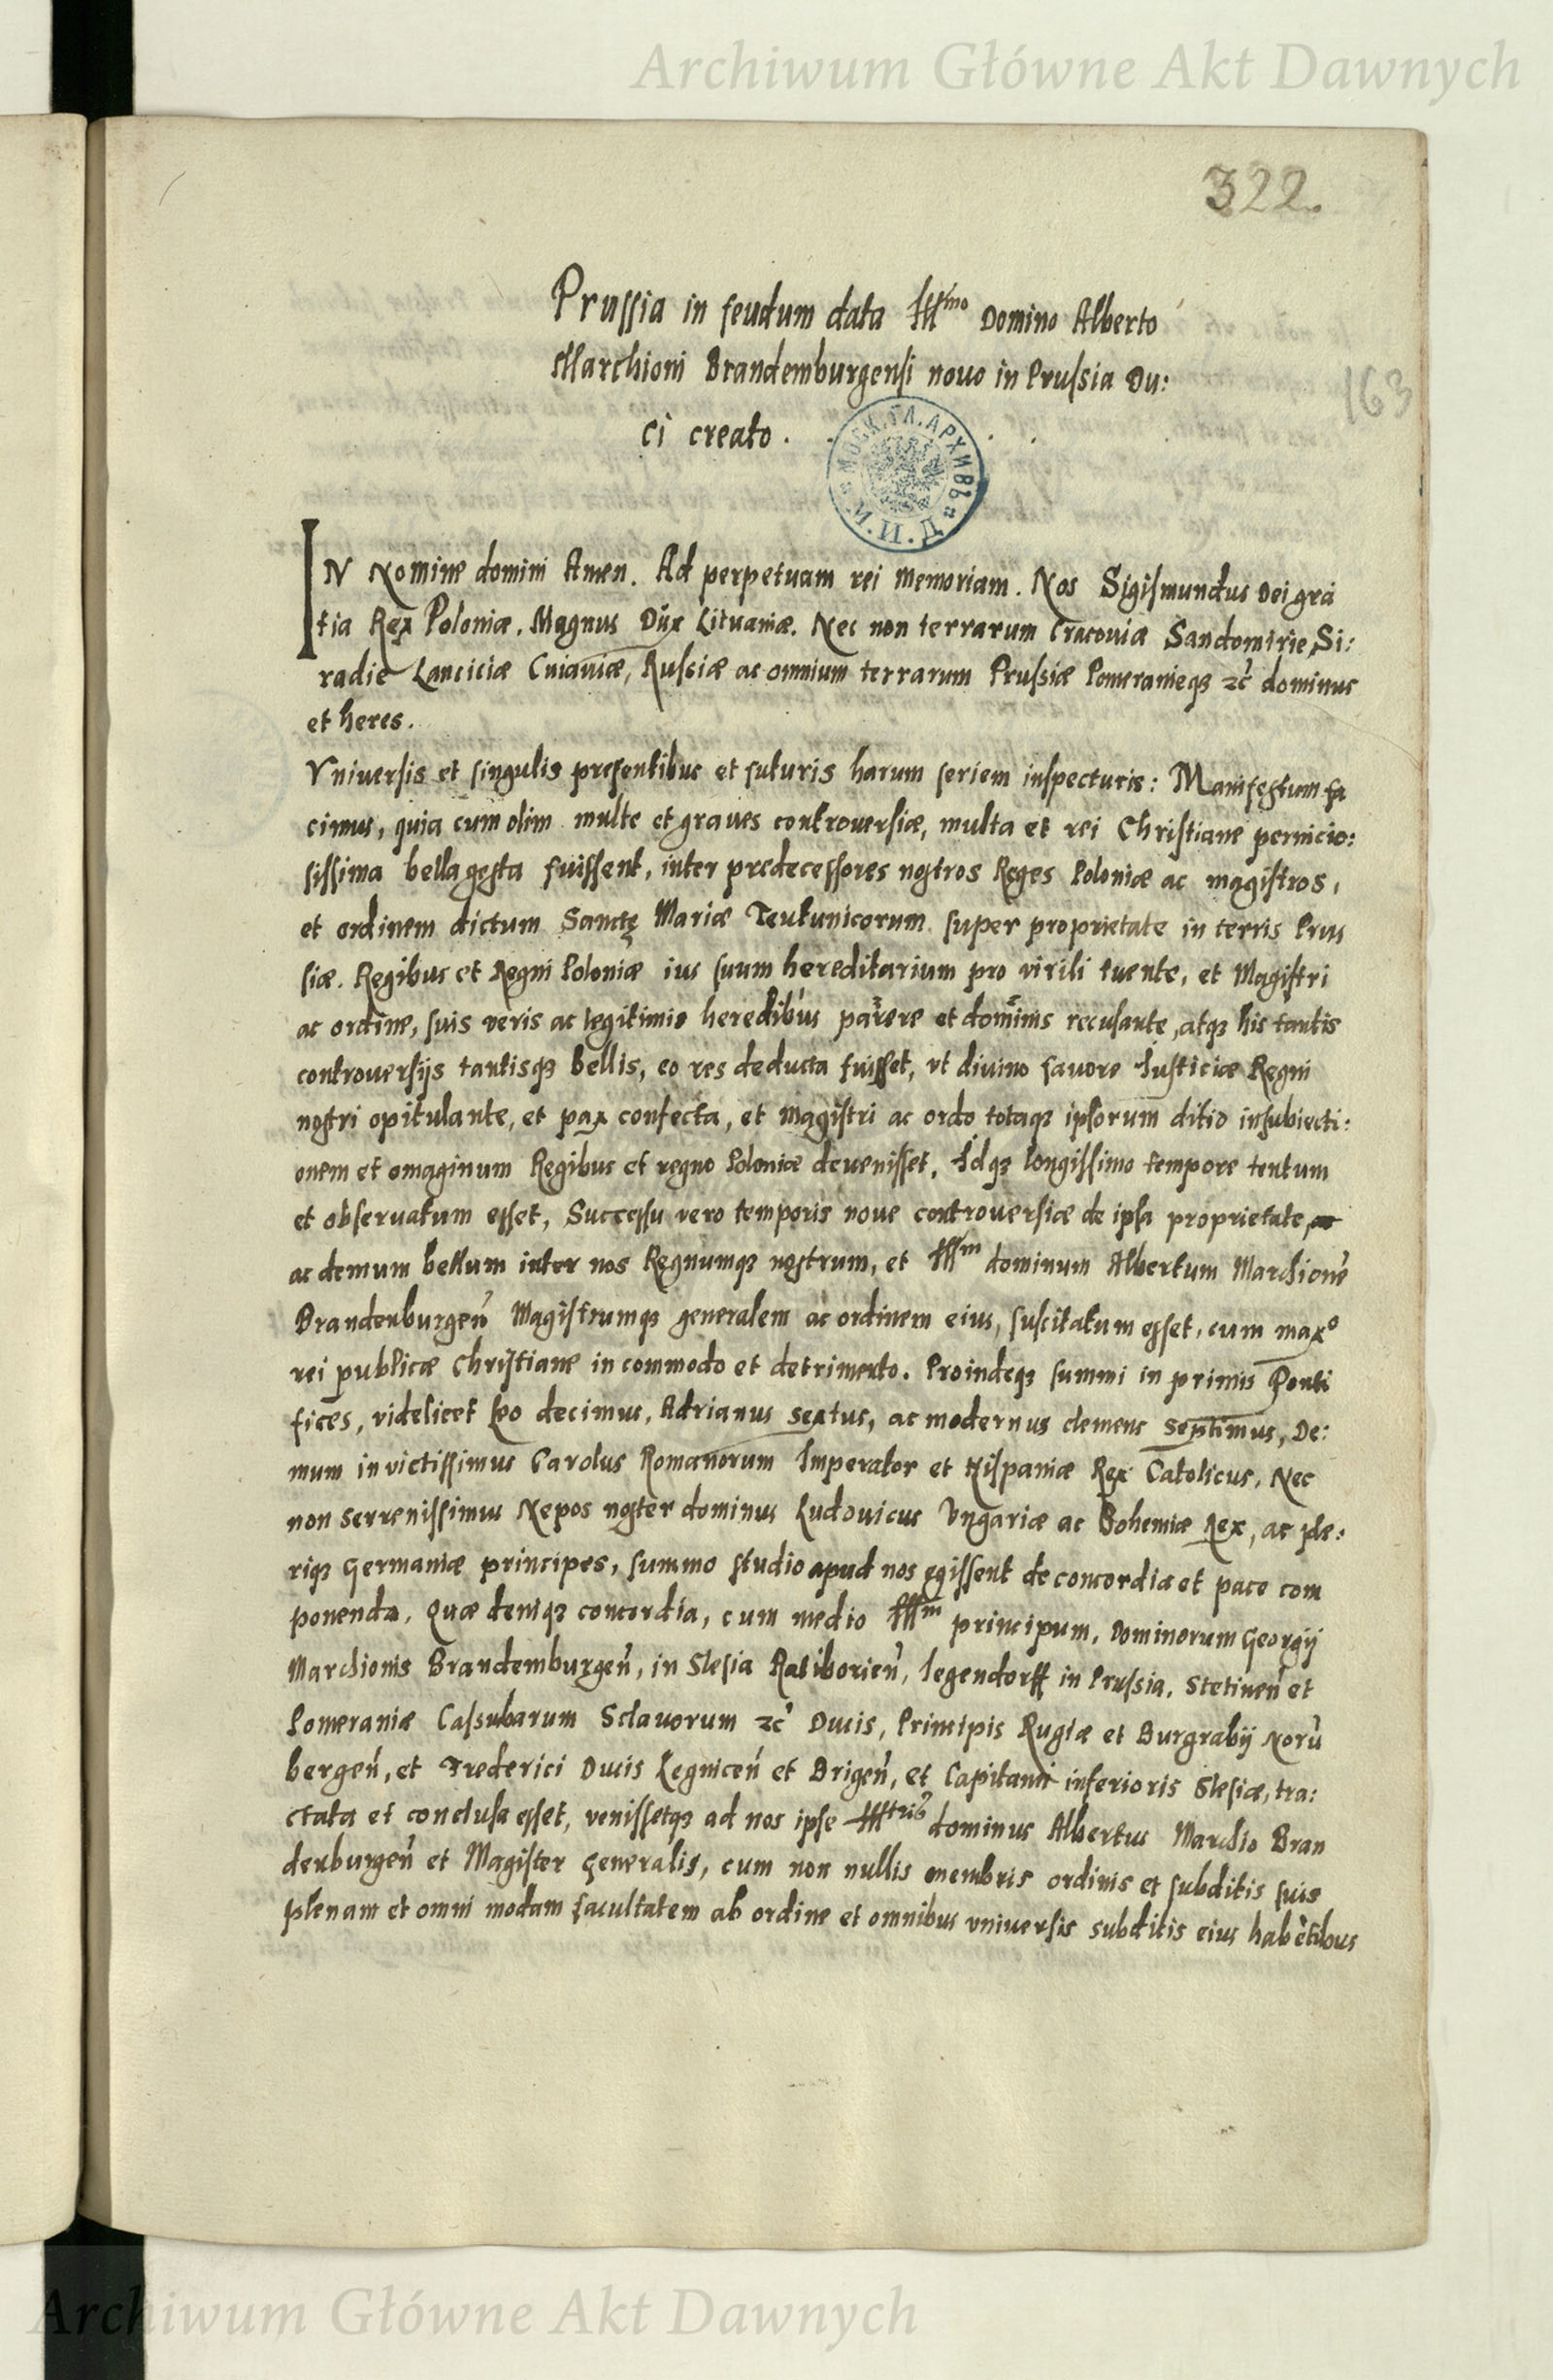 Archiwum Główne Akt Dawnych
322.
Prussia in feudum data Illmo Domino Alberto
Marchioni Brandemburgensi nouo in Prussia Du:
ci creato.
163
МОСК.ГЛ.АРХИВЪ
М.И.Д.
IN Nomine domini Amen. Ad perpetuam rei memoriam. Nos Sigismundus Dei gra
tia Rex Poloniæ. Magnus Dux Lituaniæ. Nec non terrarum Cracouiæ Sandomirie, Si:
radie Lanciciæ Cuiauiæ, Russiæ ac omnium terrarum Prussiæ Pomeranieqꝫ ꝛc̃ dominus
et heres.
Vniuersis et singulis presentibus et futuris harum seriem inspecturis: Manifestum fa
cimus, quia cum olim multe et graues controuersiæ, multa et rei Christiane pernicio:
sissima bella gesta fuissent, inter predecessores nostros Reges Poloniæ ac magistros,
et ordinem dictum Sanctę Mariæ Teutunicorum super proprietate in terris Prus
siæ. Regibus et Regni Poloniæ ius suum hereditarium pro virili tuente, et Magistri
ac ordine, suis veris ac legitimis heredibus parere et dominis recusante, atqꝫ his tantis
controuersijs tantisqꝫ bellis, eo res deducta fuisset, vt diuino fauore Iusticiæ Regni
nostri opitulante, et pax confecta, et magistri ac ordo totaqꝫ ipsorum ditio in subiecti:
onem et omaginum Regibus et regno Poloniæ deuenisset. Idqꝫ longissimo tempore tentum
et obseruatum esset, Successu vero temporis noue controuersiæ de ipsa proprietate, ac
ac demum bellum inter nos Regnumqꝫ nostrum, et Illm dominum Albertum Marchionẽ
Brandenburgeñ Magistrumqꝫ generalem ac ordinem eius, suscitatum esset, cum maxo
rei publicæ Christiane in commodo et detrimento. Proindeqꝫ summi in primis Ponti
fices, videlicet Leo decimus, Adrianus sextus, ac modernus clemens septimus, De:
mum inuictissimus Carolus Romanorum Imperator et Hispaniæ Rex Catolicus, Nec
non serrenissimus Nepos noster dominus Ludouicus Vngariæ ac Bohemiæ Rex, ac ple:
riqꝫ Germaniæ principes, summo studio apud nos egissent de concordia et pace com
ponenda. Quæ deniqꝫ concordia, cum medio Illm principum, Dominorum Georgij
Marchionis Brandemburgeñ, in Slesia Ratiborieñ, Iegendorff in Prussia. Stetineñ et
Pomeraniæ Cassubarum Sclauorum ꝛc̃ Ducis, Principis Rugiæ et Burgrabij Norũ
bergeñ, et Frederici Ducis Legniceñ et Brigeñ, et Capitanei inferioris Slesiæ, tra:
ctata et conclusa esset, venissetqꝫ ad nos ipse Illtris dominus Albertus Marchio Bran
denburgeñ et Magister generalis, cum non nullis membris ordinis et subditis suis
plenam et omni modam facultatem ab ordine et omnibus vniuersis subditis eius habẽtibus
Archiwum Główne Akt Dawnych